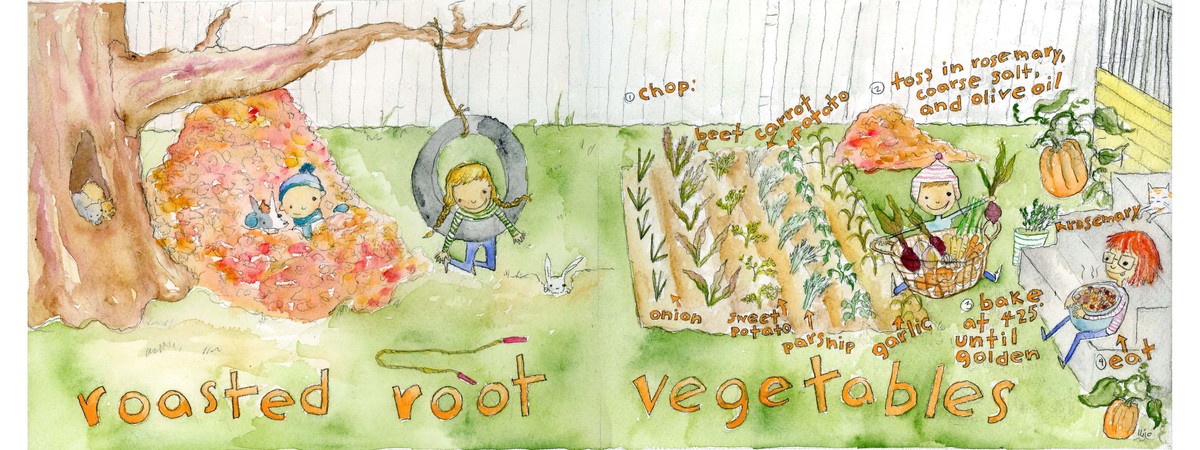 ① chop:
② toss in rosemary,
coarse salt,
and olive oil
beet
carrot
potato
rosemary
onion
sweet
potato
parsnip
garlic
③ bake
at 425°
until
golden
④ eat
roasted root vegetables